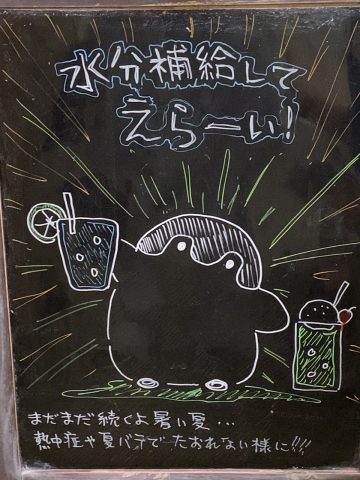 水分補給して
えらーい!
まだまだ続くよ暑い夏...
熱中症や夏バテでたおれない様に!!!